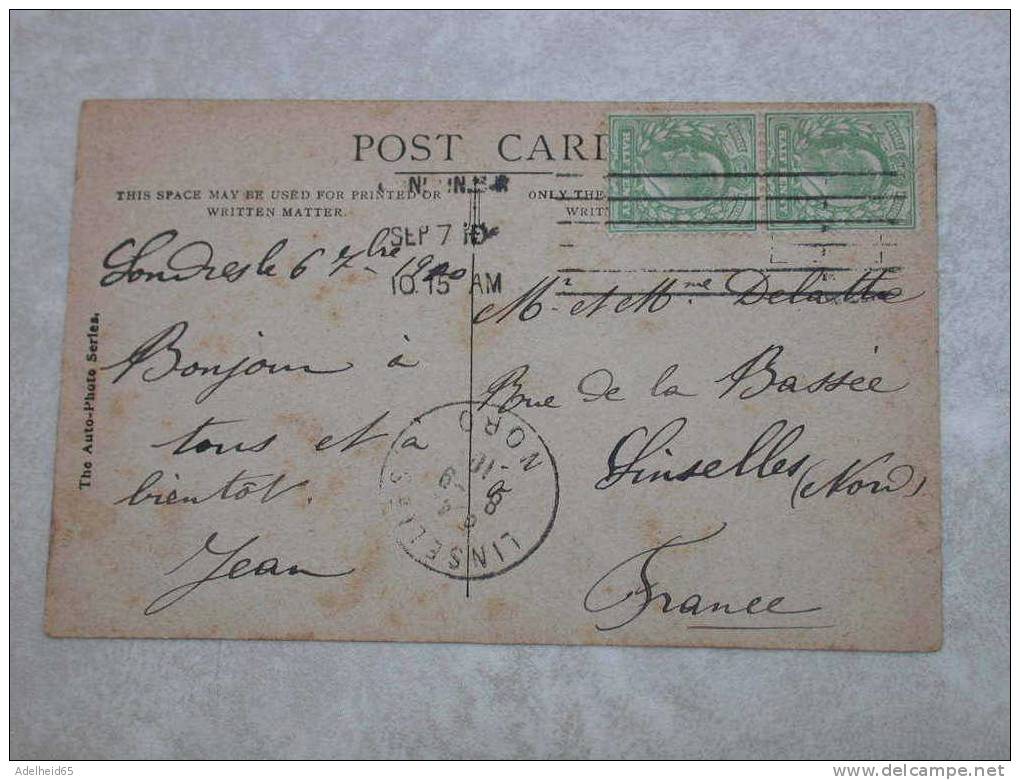 POST CARD
THIS SPACE MAY BE USED FOR PRINTED OR
WRITTEN MATTER.
ONLY THE
WRITT
SEP 7 10
10.15 AM
Londres le 6 7bre 1910
Bonjour à
tous et à
bientôt.
Jean
Mr et Mme Delattre
Rue de la Bassée
Linselles (Nord)
France
LINSELLES
NORD
The Auto-Photo Series.
Adelheid65
www.delcampe.net